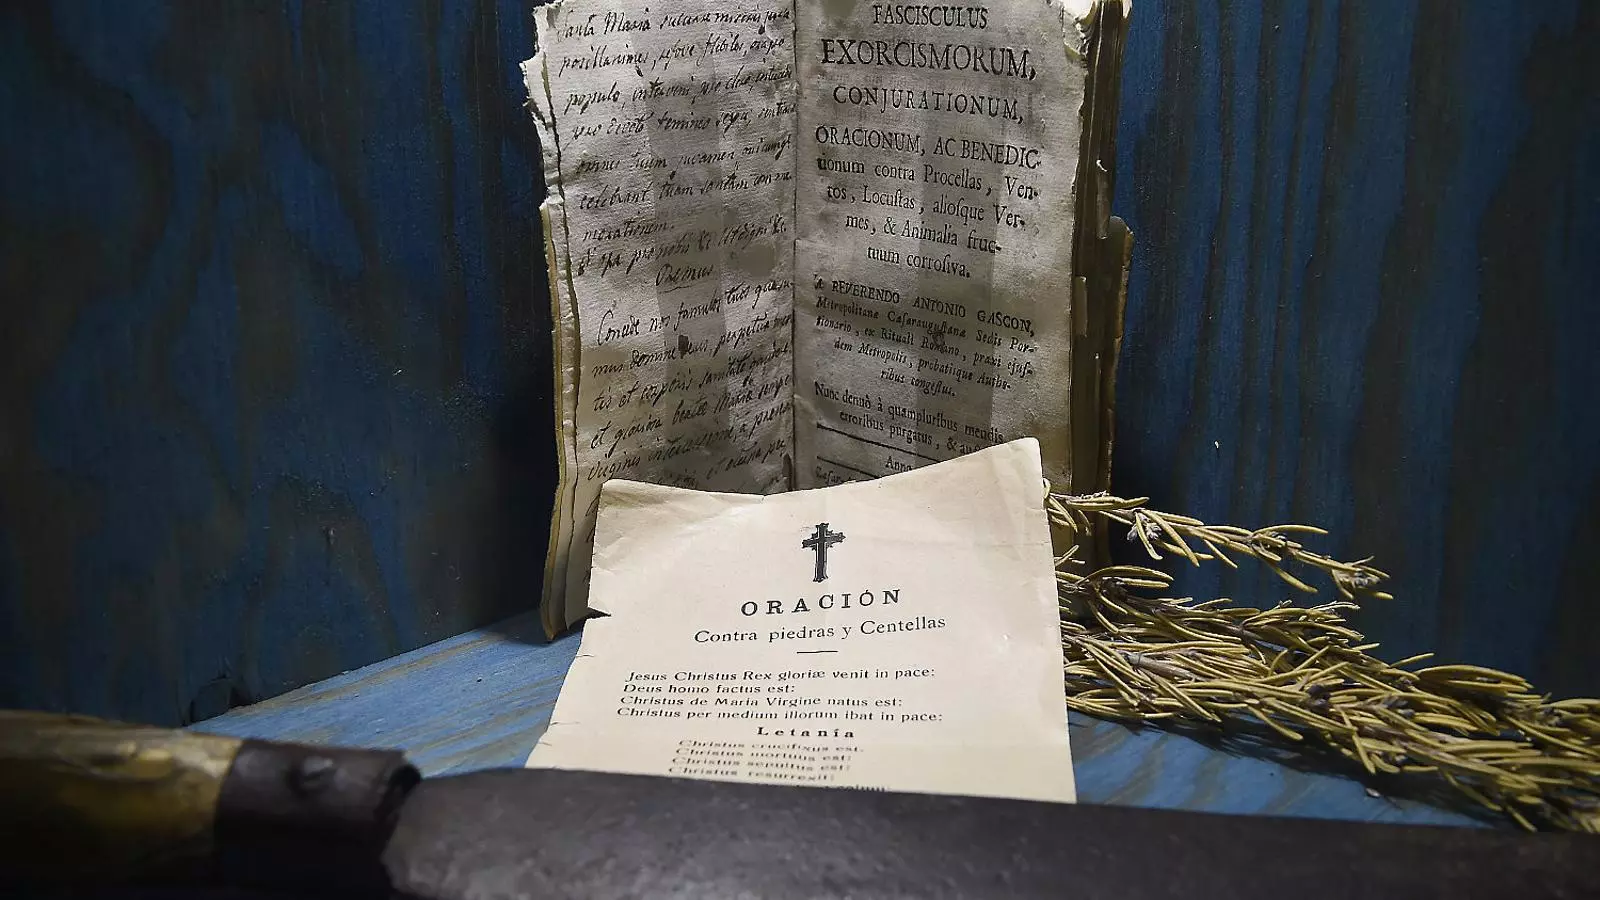 Santa Maria succurre miseris juva
pusillanimes, refove flebiles, ora pro
populo, interveni pro clero, intercede
pro devoto femineo sexu, sentiant
omnes tuum juvamen, quicumque
celebrant tuam sanctam comme
morationem.
ora pro nobis
Oremus
Concede nos famulos tuos
domine Deus, perpetua
tis et corporis sanitate
et gloriosa beatæ Mariæ semper
Virginis intercessione, a
FASCISCULUS
EXORCISMORUM,
CONJURATIONUM,
ORACIONUM, AC BENEDIC-
tionum contra Procellas, Ven-
tos, Locustas, aliosque Ver-
mes, & Animalia fruc-
tuum corrosiva.
A REVERENDO ANTONIO GASCON,
Metropolitanæ Cæsaraugustanæ Sedis Por-
tionario, ex Rituali Romano, praxi ejus-
dem Metropolis, probatisque Autho-
ribus congestus.
Nunc denuò à quampluribus mendis
erroribus purgatus, & au
Anno
ORACIÓN
Contra piedras y Centellas
Jesus Christus Rex gloriæ venit in pace:
Deus homo factus est:
Christus de Maria Virgine natus est:
Christus per medium illorum ibat in pace:
Letanía
Christus crucifixus est.
Christus mortuus est:
Christus sepultus est:
Christus resurrexit: